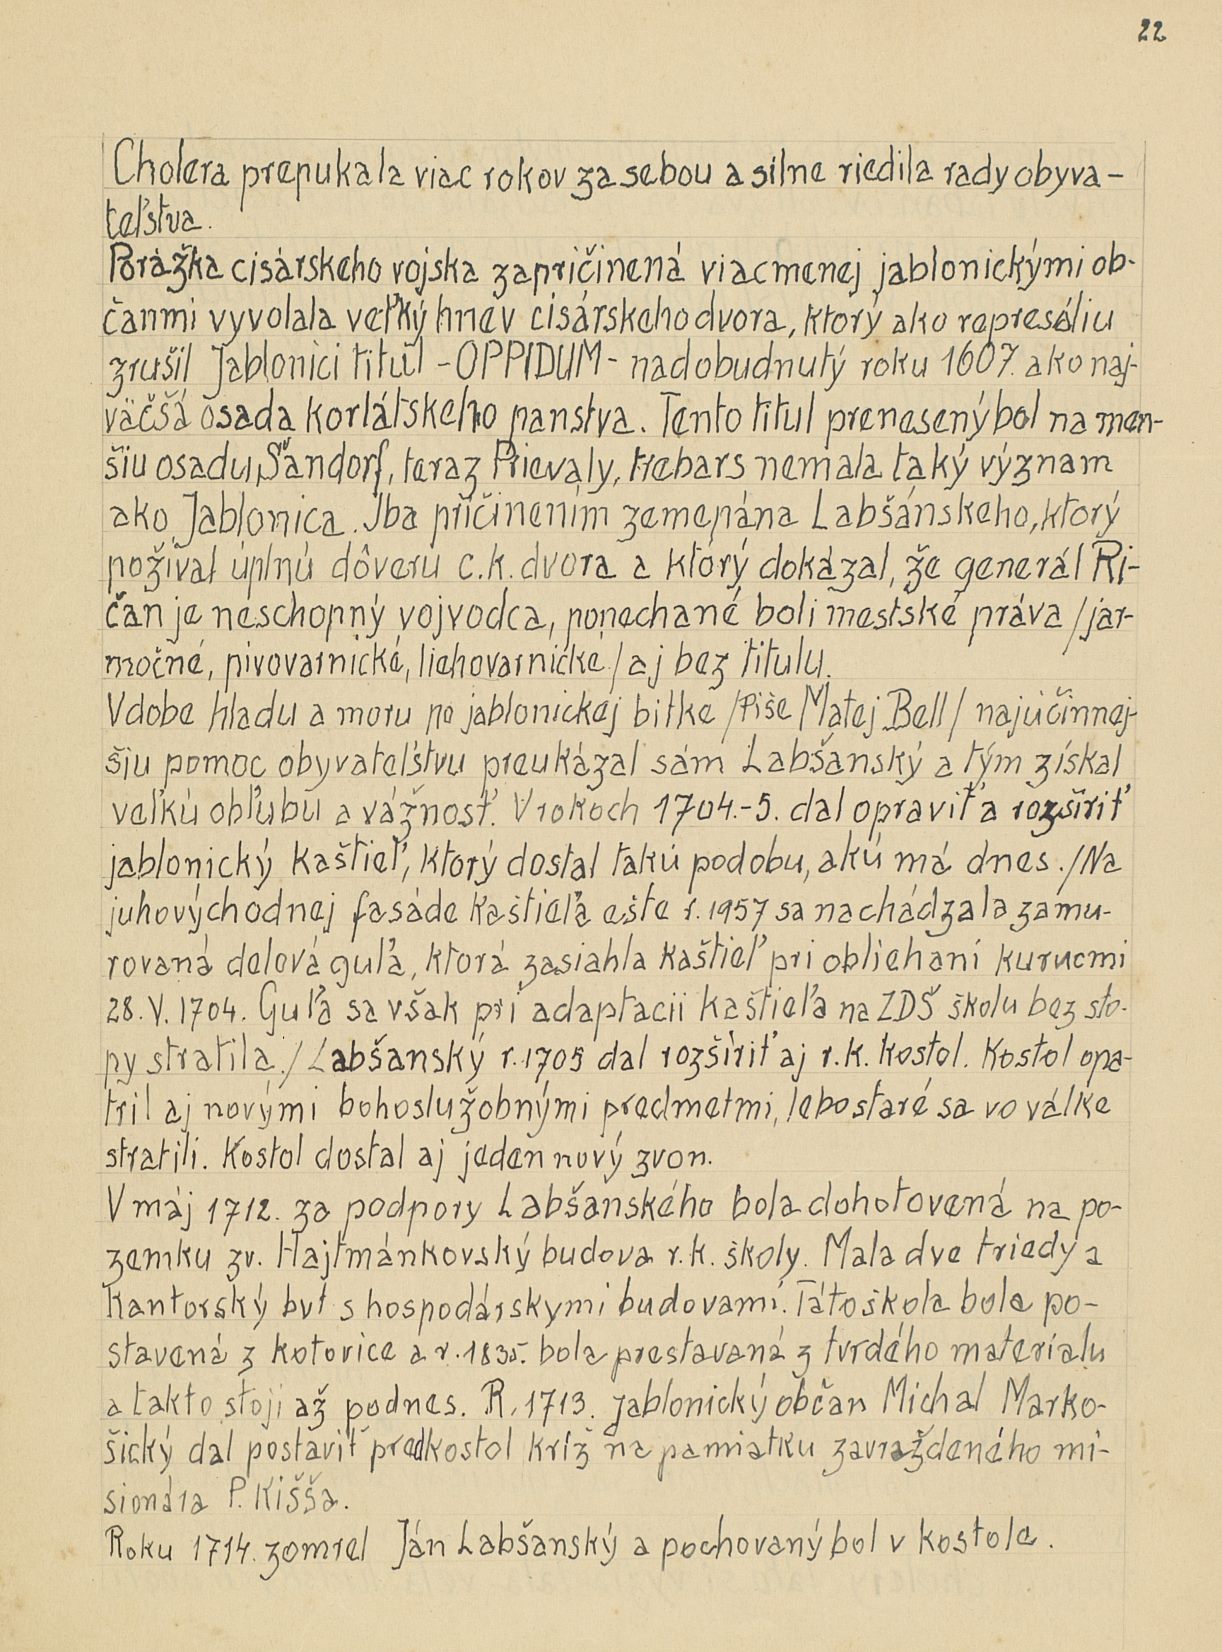 22
Cholera prepukala viac rokov za sebou a silne riedila rady obyva-
teľstva.
Porážka cisárskeho vojska zapričinená viacmenej jablonickými ob-
čanmi vyvolala veľký hnev cisárskeho dvora, ktorý ako represáliu
zrušil Jablonici titul -OPPIDUM- nadobudnutý roku 1607. ako naj-
väčšá osada korlátskeho panstva. Tento titul prenesený bol na men-
šiu osadu, Šandorf, teraz Prievaly, trebars nemala taký význam
ako Jablonica. Iba pričinením zemepána Labšánskeho, ktorý
požíval úplnú dôveru c.k. dvora a ktorý dokázal, že generál Ri-
čan je neschopný vojvodca, ponechané boli mestské práva /jar-
močné, pivovarnické, liehovarnické/ aj bez titulu.
V dobe hladu a moru po jablonickej bitke /Píše Matej Bell/ najúčinnej-
šiu pomoc obyvateľstvu preukázal sám Labšanský a tým získal
veľkú obľubu a vážnosť. V rokoch 1704.-5. dal opraviť a rozšíriť
jablonický kaštieľ, ktorý dostal takú podobu, akú má dnes. /Na
juhovýchodnej fasáde kaštieľa ešte r. 1957 sa nachádzala zamu-
rovaná delová guľa, ktorá zasiahla kaštieľ pri obliehaní kurucmi
28. V. 1704. Guľa sa však pri adaptacii kaštieľa na ZDŠ školu bez sto-
py stratila./ Labšanský r. 1705 dal rozšíriť aj r.k. kostol. Kostol opa-
tril aj novými bohoslužobnými predmetmi, lebo staré sa vo válke
stratili. Kostol dostal aj jeden nový zvon.
V máj 1712. za podpory Labšanského bola dohotovená na po-
zemku zv. Hajtmánkovský budova r.k. školy. Mala dve triedy a
kantorský byt s hospodárskymi budovami. Táto škola bola po-
stavená z kotovice a r. 1835. bola prestavaná z tvrdého materialu
a takto stojí až podnes. R. 1713. jablonický občan Michal Marko-
šický dal postaviť pred kostol kríž na pamiatku zavraždeného mi-
sionára P. Kišša.
Roku 1714. zomrel Ján Labšanský a pochovaný bol v kostole.